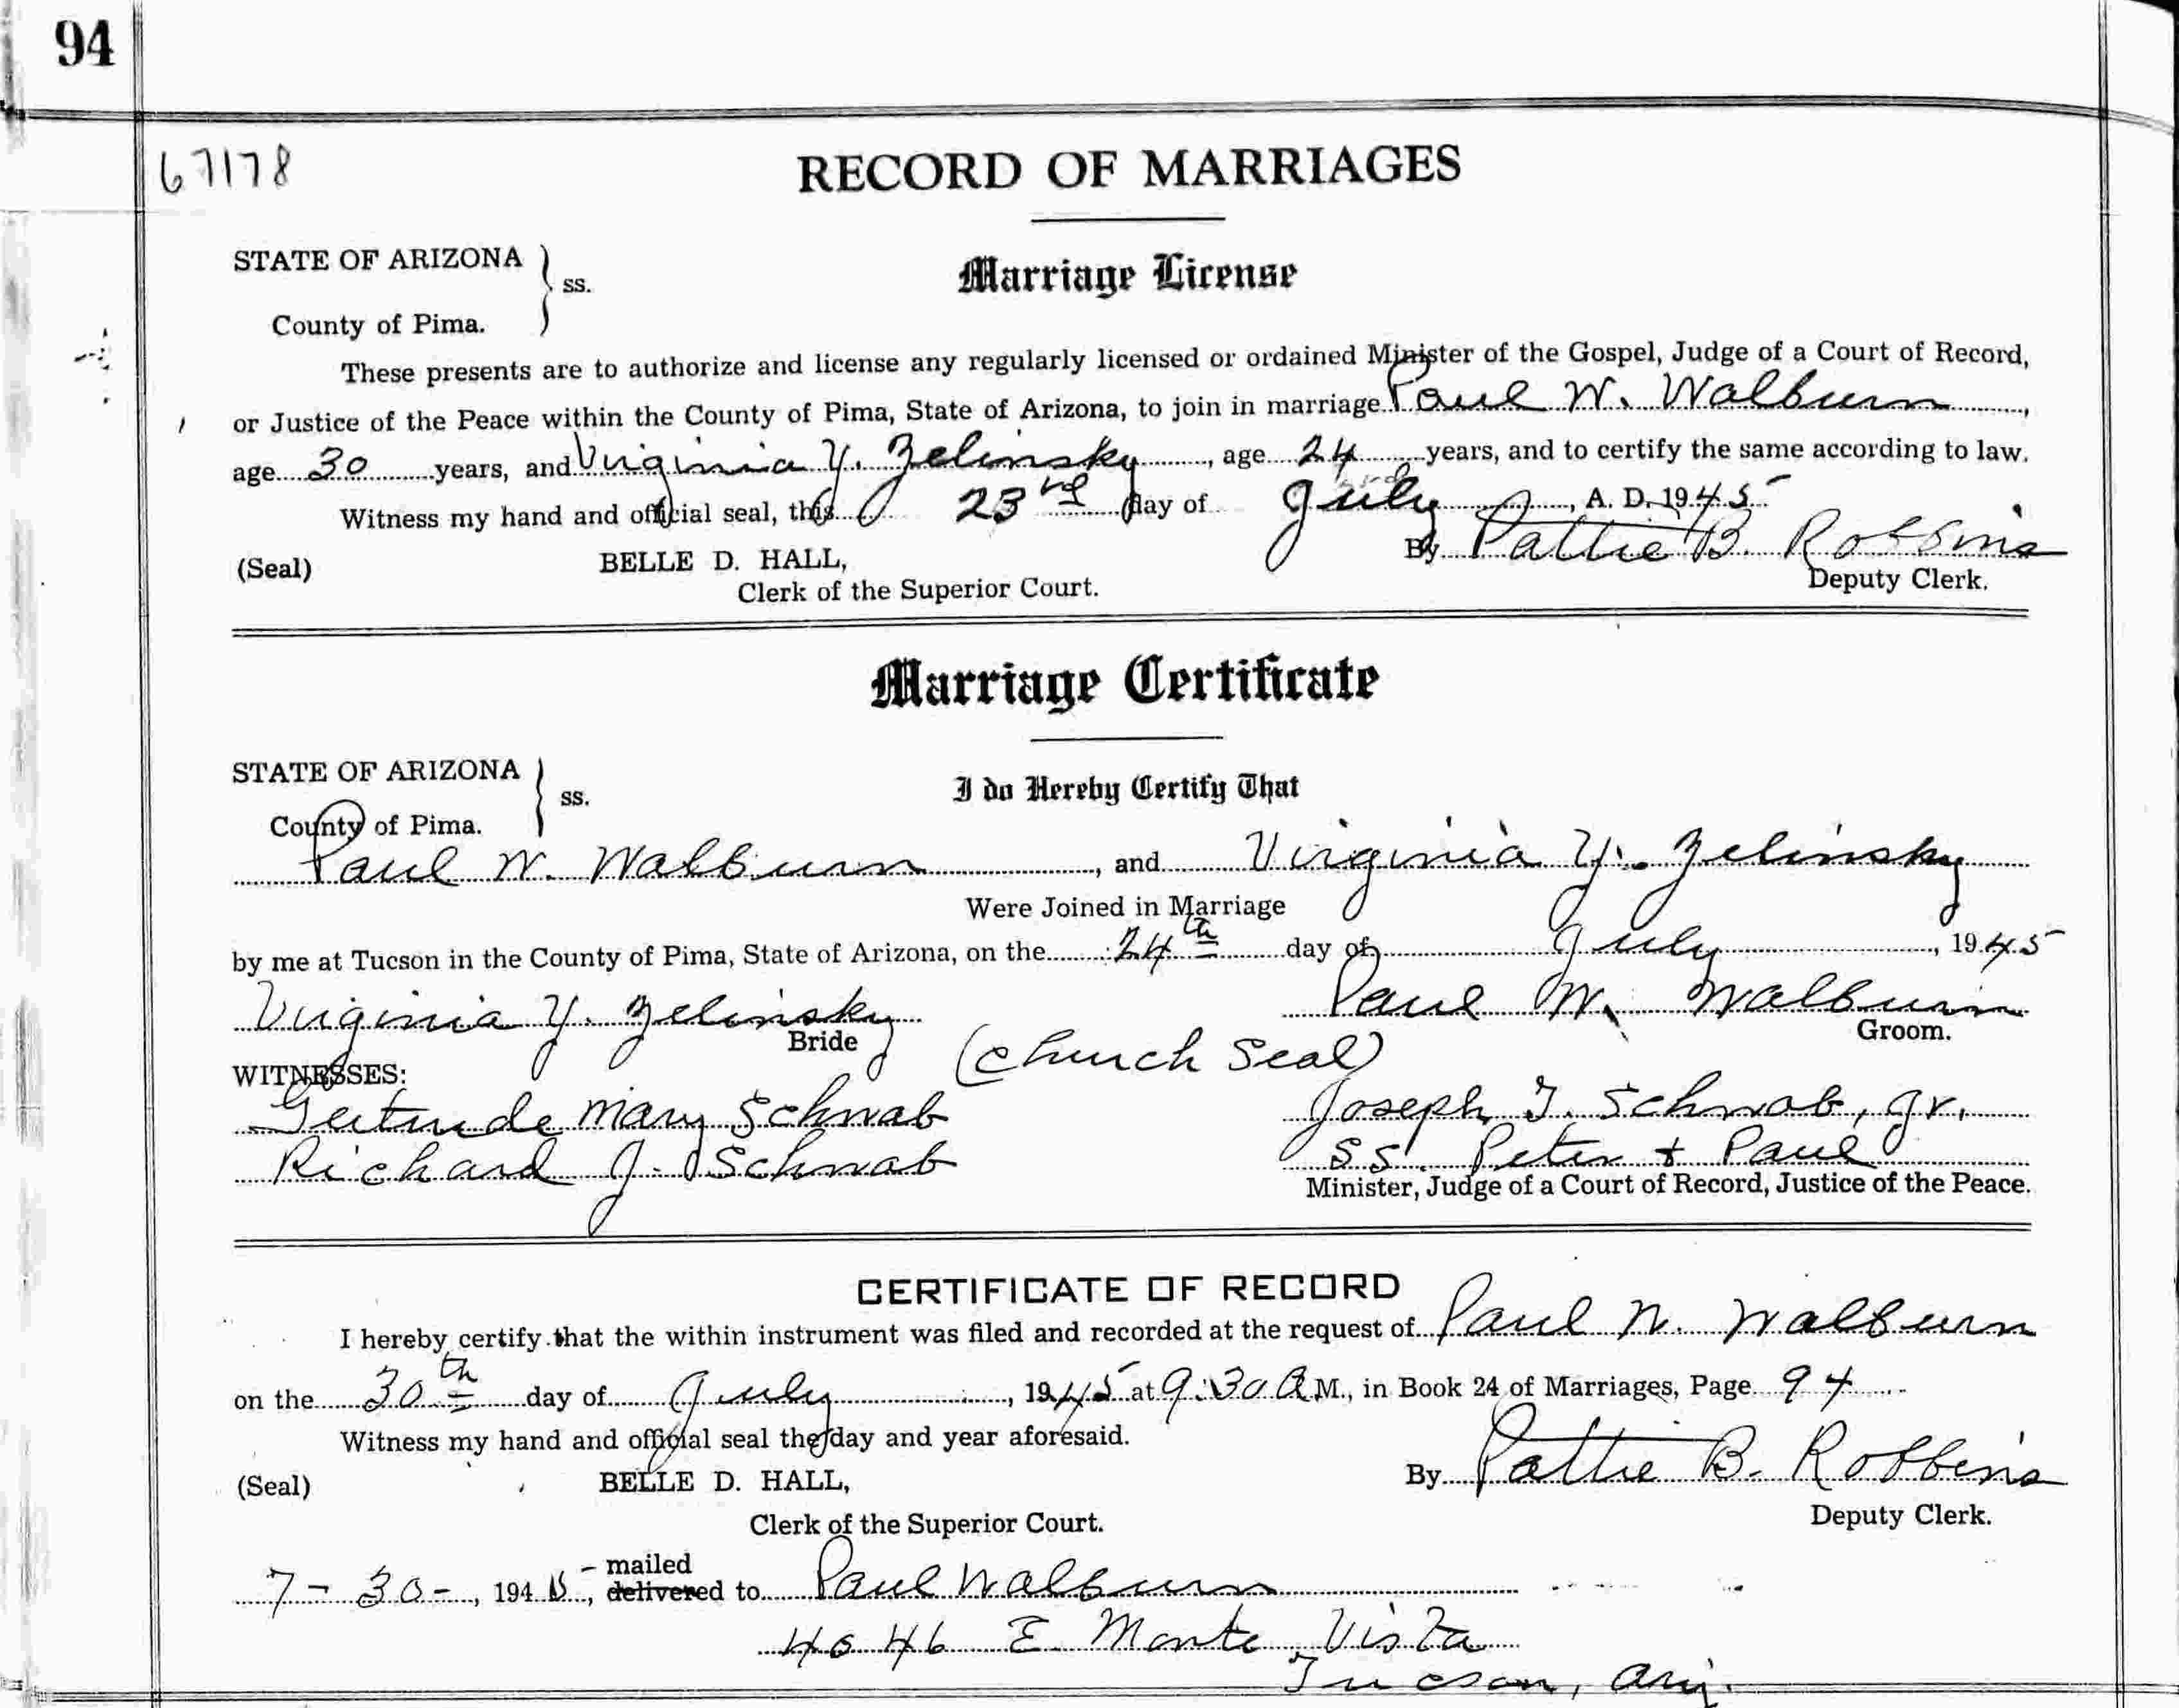 94
67178
RECORD OF MARRIAGES
STATE OF ARIZONA
ss.
County of Pima.
Marriage License
These presents are to authorize and license any regularly licensed or ordained Minister of the Gospel, Judge of a Court of Record,
or Justice of the Peace within the County of Pima, State of Arizona, to join in marriage Paul W. Walburn,
age 30 years, and Virginia Y. Zelinsky, age 24 years, and to certify the same according to law.
Witness my hand and official seal, this 23rd day of July, A. D. 1945
(Seal) BELLE D. HALL, By Pattie B. Robbins
Clerk of the Superior Court. Deputy Clerk.
Marriage Certificate
STATE OF ARIZONA
ss.
County of Pima.
I do Hereby Certify That
Paul W. Walburn, and Virginia Y. Zelinsky
Were Joined in Marriage
by me at Tucson in the County of Pima, State of Arizona, on the 24th day of July, 1945
Virginia Y. Zelinsky Paul W. Walburn
Bride Groom.
(Church Seal)
WITNESSES:
Gertrude Mary Schwab Joseph T. Schwab, Jr.
Richard J. Schwab SS. Peter + Paul
Minister, Judge of a Court of Record, Justice of the Peace.
CERTIFICATE OF RECORD
I hereby certify that the within instrument was filed and recorded at the request of Paul W. Walburn
on the 30th day of July, 1945 at 9:30 A M., in Book 24 of Marriages, Page 94
Witness my hand and official seal the day and year aforesaid.
(Seal) BELLE D. HALL, By Pattie B. Robbins
Clerk of the Superior Court. Deputy Clerk.
- mailed
7-30-, 1945, delivered to Paul Walburn
4046 E Monte Vista
Tucson, Ariz.